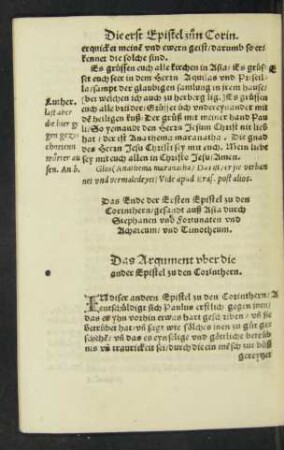 Die erst Epistel zůn Corin.
erquicket meinē vnd ewern geist/darumb so er
kennet die solche sind.
Es grüssen euch alle kirchen in Asia/Es grüs
set euch seer in dem Herrn Aquilas vnd Priscil-
la/sampt der glaubigen samlung in jrem hause/
(bei welchen ich auch zu herberg lig.) Es grüssen
euch alle brüder/Grüsset üch vndereynander mit
dem heyligen kuß. Der grůß mit meiner hand Pau
li/ So yemandt den Herrn Jesum Christ nit lieb
hat / der ist Anathema maranatha. Die gnad
des Herrn Jesu Christi sey mit euch. Mein liebe
sey mit euch allen in Christo Jesu/Amen.
Luther.
last aber
die hier
gen gezey
chneten
wörter au
sen. An b.
Glos (Anathema maranatha) Das ist/er sie verban
net vnd vermaledeyet/Vide apud Eras. post alios.
Das Ende der Ersten Epistel zu den
Corinthern/gesandt auß Asia durch
Stephanen vnd Fortunaten vnd
Achaicum/ vnd Timotheum.
Das Argument vber die
ander Epistel zu den Corinthern.
IN diser andern Epistel zu den Corinthern/
entschüldigt sich Paulus erstlich gegen inen/
das es yhn vorhin etwas hart geschriben / vñ sie
betrübet hat/vñ sagt wie solches inen zu gůt ge
schehē/ vñ das es eyn selige vnd götliche betrüb
nis vñ traurickeit sei/durch die ein mēsch zur bůß
gereytzet